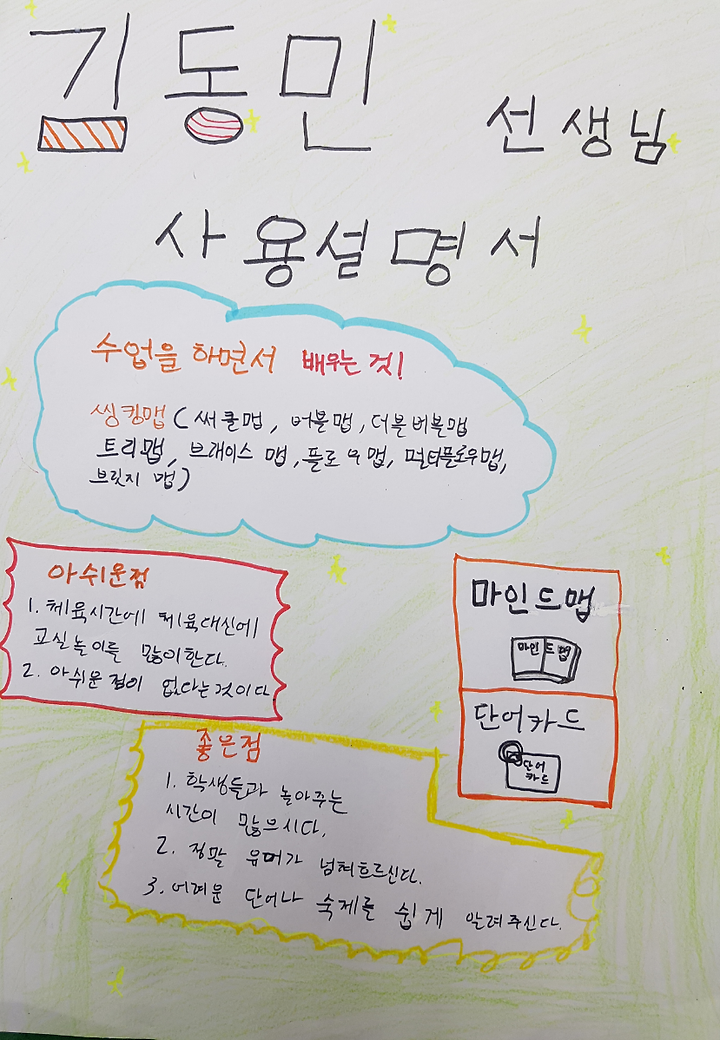 김동민 선생님
사용설명서
수업을 하면서 배우는 것!
씽킹맵 ( 써클맵, 버블맵, 더블버블맵
트리맵, 브레이스 맵, 플로우맵, 멀티플로우맵,
브릿지 맵)
아쉬운점
1. 체육시간에 체육대신에
교실놀이를 많이한다.
2. 아쉬운 점이 없다는것이다
마인드맵
마인드맵
단어카드
단어
카드
좋은점
1. 학생들과 놀아주는
시간이 많으시다.
2. 정말 유머가 넘쳐흐르신다.
3. 어려운 단어나 숙제를 쉽게 알려주신다.